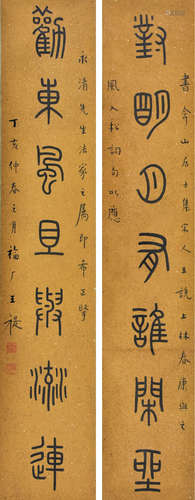 對明月有誰閒坐
居士集宋人王詵上林春康與之
風入松詞句以應
勸東風且與流連
永清先生法家之屬即希正
丁亥仲春之月福厂王禔